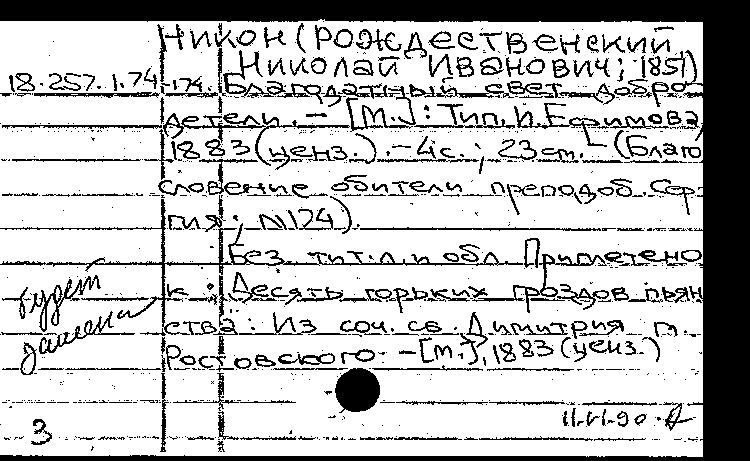 Никон (Рождественский
Николай Иванович; 1851)
18.257.1.74-174. Благодатный свет добро-
детели. – [М.]: Тип. И. Ефимова,
1883 (ценз.). – 4с.; 23 см. – (Благо
словение обители преподоб. Сер-
гия; N124).
Без тит. л. и обл. Приплетено
к: Десять горьких гроздов пьян
ства: Из соч. св. Димитрия м.
Ростовского. – [М.], 1883 (ценз.)
будет
замена
11.VI.90.
3